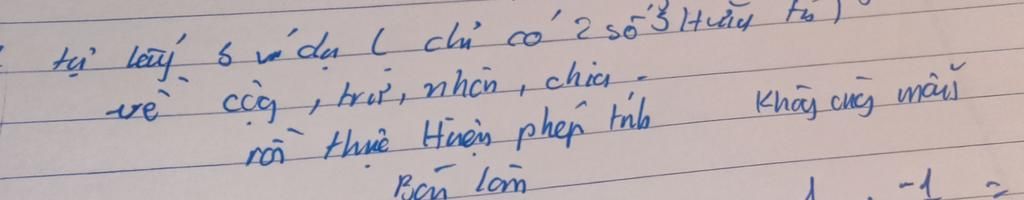 tự lấy 5 ví dụ ( chỉ có 2 số Hữu tỉ )
về cộng, trừ, nhân, chia.
rồi thực Hiện phép tính Không cùng mẫu
Bài làm
1 -1 =